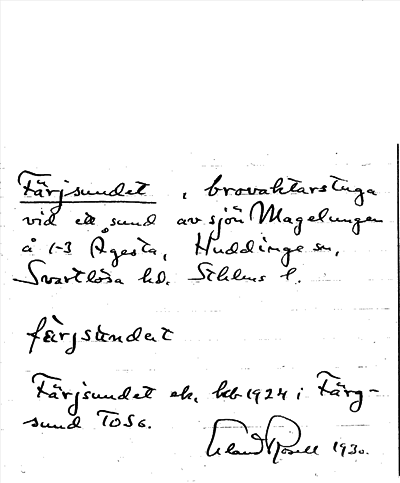 Färjsundet, brovaktarstuga
vid ett sund av sjön Magelungen
å 1-3 Ågesta, Huddinge sn,
Svartlösa hd. Sthlms l.
färjsundet
Färjsundet ek. kbl 1924 i Färg-
sund TOSG.
Erland Rosell 1930.